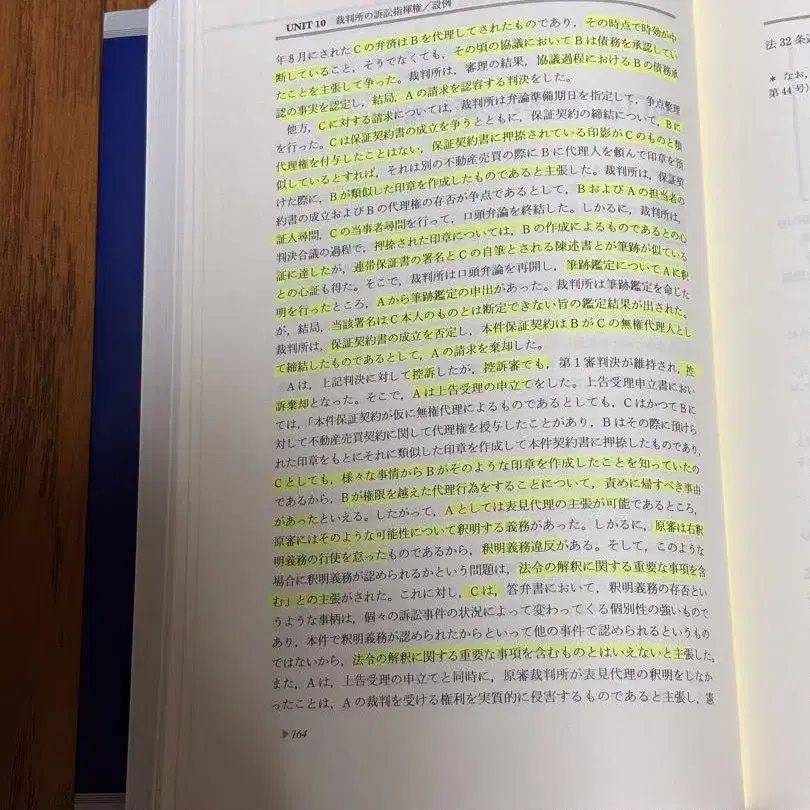 UNIT 10 裁判所の訴訟指揮権／設例
年8月にされたCの弁済はBを代理してされたものであり，その時点で時効が中
断していること，そうでなくても，その頃の協議においてBは債務を承認してい
たことを主張して争った。裁判所は，審理の結果，協議過程におけるBの債務承
認の事実を認定し，結局，Aの請求を認容する判決をした。
他方，Cに対する請求については，裁判所は弁論準備期日を指定して，争点整理
を行った。Cは保証契約書の成立を争うとともに，保証契約の締結について，Bに
代理権を付与したことはない，保証契約書に押捺されている印影がCのものと類
似しているとすれば，それは別の不動産売買の際にBに代理人を頼んで印章を預
けた際に，Bが類似した印章を作成したものであると主張した。裁判所は，保証契
約書の成立およびBの代理権の存否が争点であるとして，BおよびAの担当者の
証人尋問，Cの当事者尋問を行って，口頭弁論を終結した。しかるに，裁判所は，
判決合議の過程で，押捺された印章については，Bの作成によるものであるとの心
証に達したが，連帯保証書の署名とCの自筆とされる陳述書とが筆跡が似ている
との心証も得た。そこで，裁判所は口頭弁論を再開し，筆跡鑑定についてAに釈
明を行ったところ，Aから筆跡鑑定の申出があった。裁判所は筆跡鑑定を命じた
が，結局，当該署名はC本人のものとは断定できない旨の鑑定結果が出された。
裁判所は，保証契約書の成立を否定し，本件保証契約はBがCの無権代理人とし
て締結したものであるとして，Aの請求を棄却した。
Aは，上記判決に対して控訴したが，控訴審でも，第1審判決が維持され，控
訴棄却となった。そこで，Aは上告受理の申立てをした。上告受理申立書におい
ては，「本件保証契約が仮に無権代理によるものであるとしても，CはかつてBに
対して不動産売買契約に関して代理権を授与したことがあり，Bはその際に預けら
れた印章をもとにそれに類似した印章を作成して本件契約書に押捺したものであり，
Cとしても，様々な事情からBがそのような印章を作成したことを知っていたの
であるから，Bが権限を越えた代理行為をすることについて，責めに帰すべき事由
があったといえる。したがって，Aとしては表見代理の主張が可能であるところ，
原審にはそのような可能性について釈明する義務があった。しかるに，原審は右釈
明義務の行使を怠ったものであるから，釈明義務違反がある。そして，このような
場合に釈明義務が認められるかという問題は，法令の解釈に関する重要な事項を含
む」との主張がされた。これに対し，Cは，答弁書において，釈明義務の存否とい
うような事柄は，個々の訴訟事件の状況によって変わってくる個別性の強いもので
あり，本件で釈明義務が認められたからといって他の事件で認められるというもの
ではないから，法令の解釈に関する重要な事項を含むものとはいえないと主張した。
また，Aは，上告受理の申立てと同時に，原審裁判所が表見代理の釈明をしなか
ったことは，Aの裁判を受ける権利を実質的に侵害するものであると主張し，憲
164
法32条
＊ なお，
第44号）